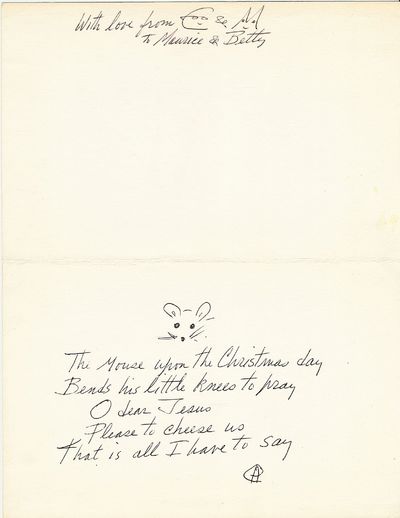 With love from Coo & Al
to Maurice & Betty
The Mouse upon the Christmas day
Bends his little knees to pray
O dear Jesus
Please to cheese us
That is all I have to say